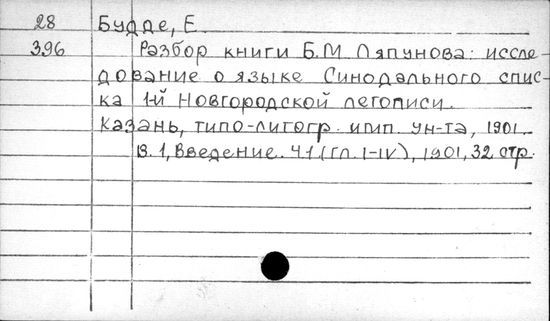 28 Будде, Е.
396 Разбор книги Б.М Ляпунова: иссле-
дование о языке Синодального спис-
ка 1-й Новгородской летописи.
Казань, типо-литогр. имп. ун-та, 1901.
В. 1, Введение. Ч 1 (гл. I-IV), 1901, 32 стр.